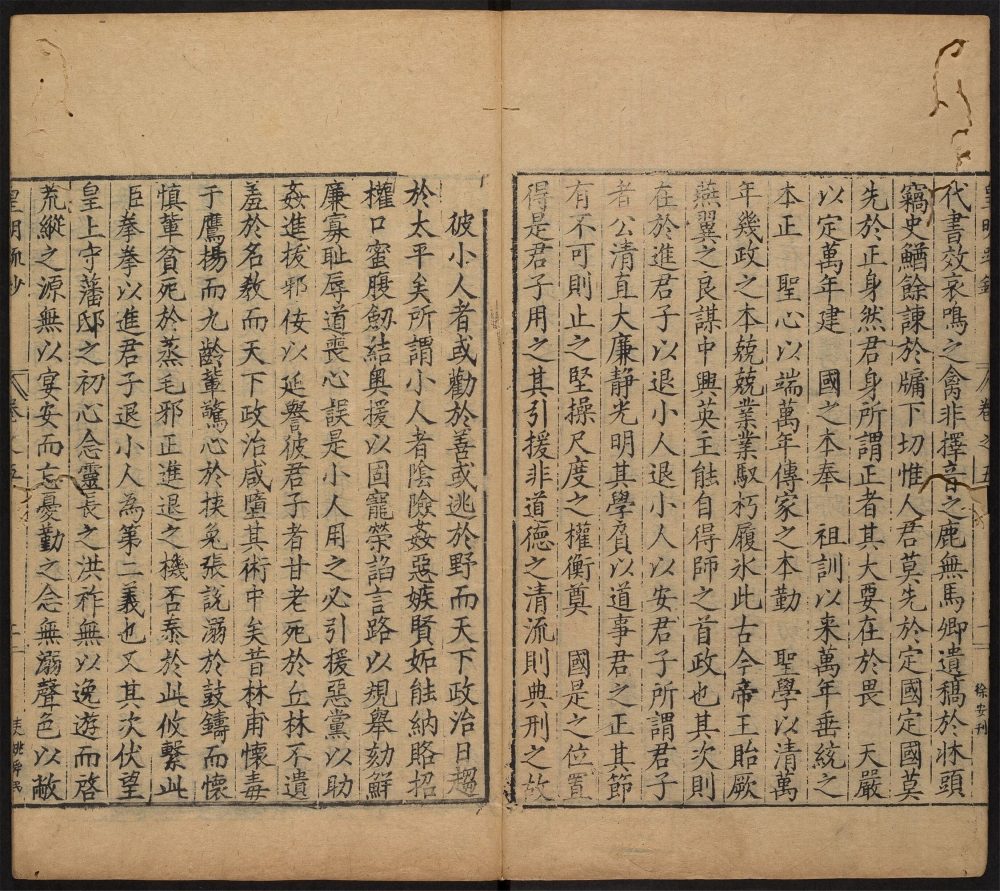 代書效哀鳴之禽非擇音之鹿無馬卿遺稿於牀頭
竊史鰌餘諫於牖下切惟人君莫先於定國定國莫
先於正身然君身所謂正者其大要在於畏　天嚴
以定萬年建　國之本奉　祖訓以来萬年垂統之
本正　聖心以端萬年傳家之本勤　聖學以清萬
年幾政之本兢兢業業馭朽履氷此古今帝王貽厥
燕翼之良謀中興英王能自得師之首政也其次則
在於進君子以退小人退小人以安君子所謂君子
者公清直大廉静光明其學負以道事君之正其節
有不可則止之堅操尺度之權衡奠　國是之位置
得是君子用之其引援非道德之清流則典刑之故
卷之五
徐安刊
彼小人者或勸於善或逃於野而天下政治日趨
於太平矣所謂小人者陰險姦惡嫉賢妬能納賂招
權口蜜腹劒結奥援以固寵榮諂言路以規舉劾鮮
廉寡恥辱道喪心誤是小人用之必引援惡黨以助
姦進拔邪佞以延譽彼君子者甘老死於丘林不遺
羞於名教而天下政治咸墮其術中矣昔林甫懷毒
于鷹揚而九齡輩驚心於挾兔張說溺於鼓鑄而懷
慎輩貧死於蒸毛邪正進退之機否泰於此攸繋此
臣拳拳以進君子退小人為第二義也又其次伏望
皇上守藩邸之初心念靈長之洪祚無以逸遊而啓
荒縱之源無以宴安而忘憂勤之念無溺聲色以敝
皇明疏抄